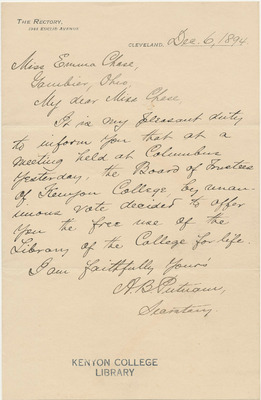 THE RECTORY,
EUCLID AVENUE
CLEVELAND, Dec. 6, 1894
Miss Emma Chase,
Gambier, Ohio.
My dear Miss Chase
It is my pleasant duty
to inform you that at a
meeting held at Columbus
yesterday, the Board of Trustees
of Kenyon College by unan-
imous vote decided to offer
you the free use of the
Library of the College for life.
I am faithfully yours
A B Putnam,
Secretary.
KENYON COLLEGE
LIBRARY